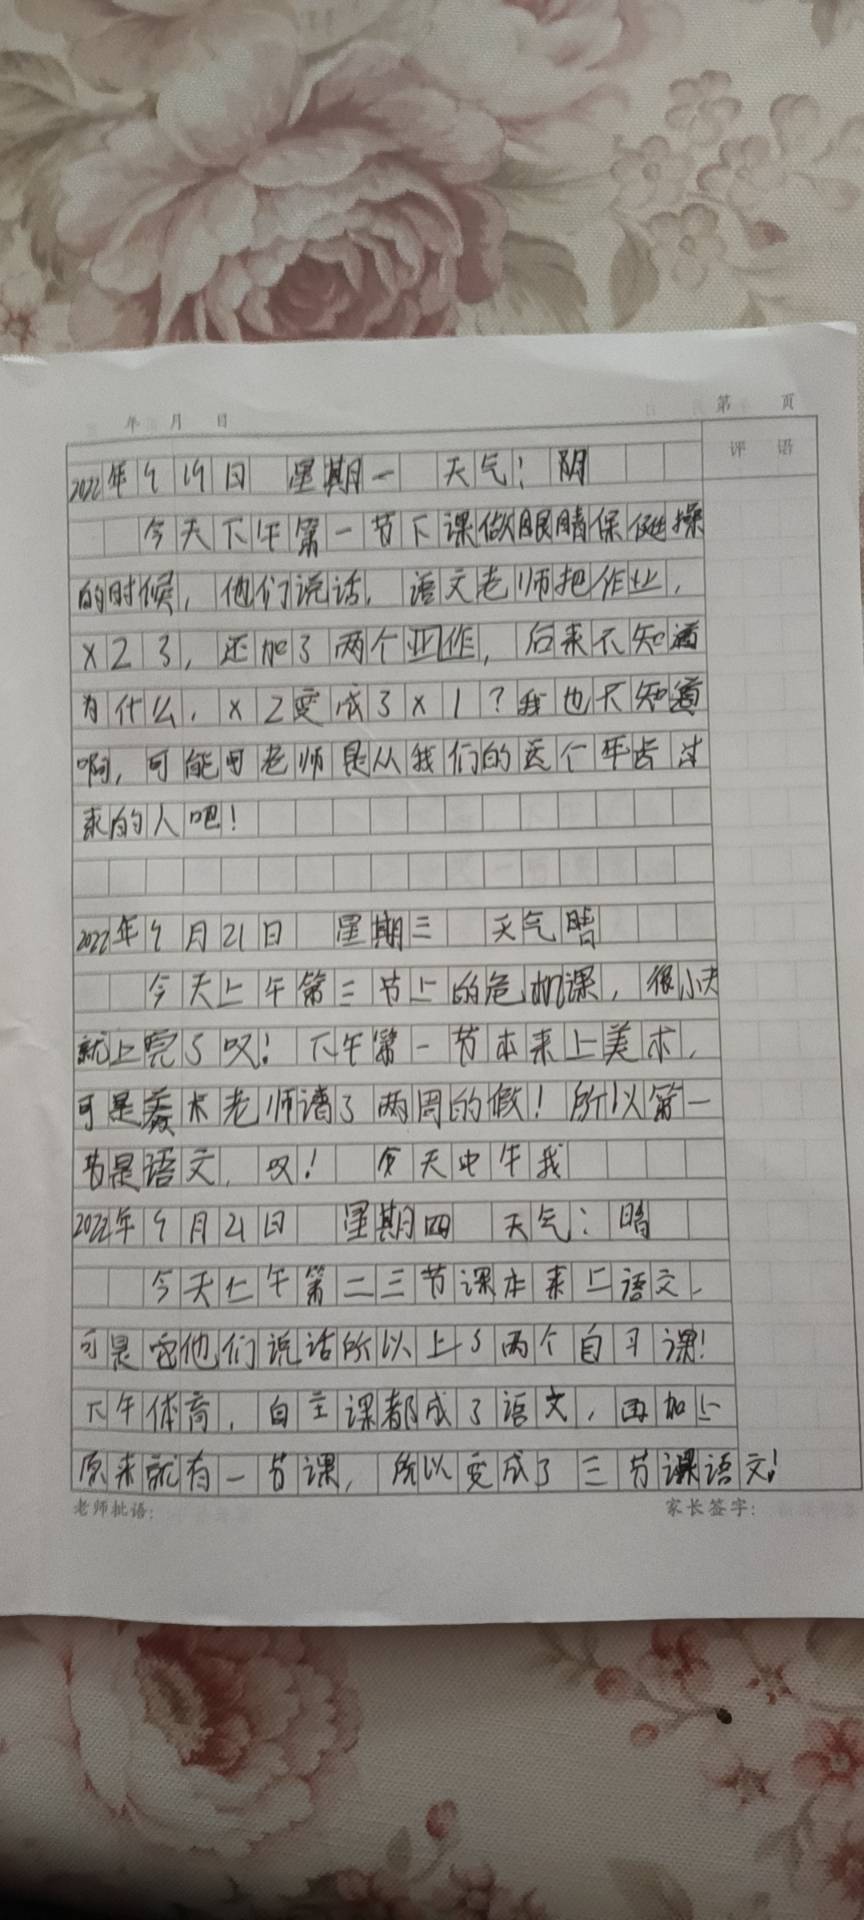 年 月 日 第 页
评 语
2022年9月19日 星期一 天气：阴
今天下午第一节下课做眼睛保健操
的时候，他们说话，语文老师把作业，
×2了，还加了两个作，后来不知道
为什么，×2变成了×1？我也不知道
啊，可能老师是从我们的这个年过
来的人吧！
2022年9月21日 星期三 天气晴
今天上午第三节上的危机课，很小
就上完了叹！下午第一节本来上美术，
可是美术老师请了两周的假！所以第一
节是语文，叹！今天中午我
2022年9月21日 星期四 天气：晴
今天上午第二三节课本来上语文，
可是他们说话所以上了两个自习课！
下午体育，自主课都成了语文，再加上
原来就有一节课，所以变成了三节课语文！
老师批语： 家长签字：